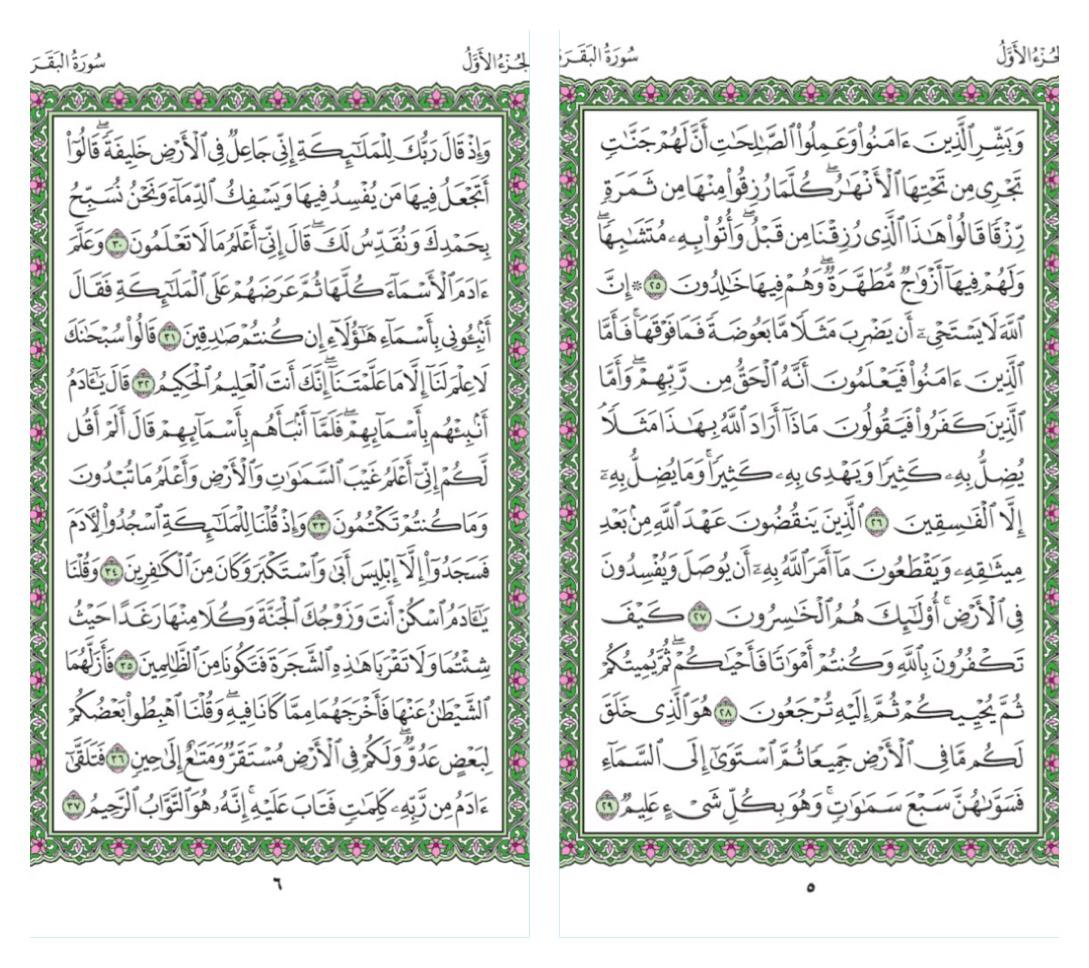 الجُزْءُ الأَوَّلُ
سُورَةُ البَقَرَ
وَبَشِّرِ ٱلَّذِينَ ءَامَنُوا۟ وَعَمِلُوا۟ ٱلصَّٰلِحَٰتِ أَنَّ لَهُمْ جَنَّٰتٍ
تَجْرِى مِن تَحْتِهَا ٱلْأَنْهَٰرُ ۖ كُلَّمَا رُزِقُوا۟ مِنْهَا مِن ثَمَرَةٍ
رِّزْقًا قَالُوا۟ هَٰذَا ٱلَّذِى رُزِقْنَا مِن قَبْلُ ۖ وَأُتُوا۟ بِهِۦ مُتَشَٰبِهًا ۖ
وَلَهُمْ فِيهَآ أَزْوَٰجٌ مُّطَهَّرَةٌ ۖ وَهُمْ فِيهَا خَٰلِدُونَ ٢٥ ۞ إِنَّ
ٱللَّهَ لَا يَسْتَحْىِۦٓ أَن يَضْرِبَ مَثَلًا مَّا بَعُوضَةً فَمَا فَوْقَهَا ۚ فَأَمَّا
ٱلَّذِينَ ءَامَنُوا۟ فَيَعْلَمُونَ أَنَّهُ ٱلْحَقُّ مِن رَّبِّهِمْ ۖ وَأَمَّا
ٱلَّذِينَ كَفَرُوا۟ فَيَقُولُونَ مَاذَآ أَرَادَ ٱللَّهُ بِهَٰذَا مَثَلًا ۘ
يُضِلُّ بِهِۦ كَثِيرًا وَيَهْدِى بِهِۦ كَثِيرًا ۚ وَمَا يُضِلُّ بِهِۦٓ
إِلَّا ٱلْفَٰسِقِينَ ٢٦ ٱلَّذِينَ يَنقُضُونَ عَهْدَ ٱللَّهِ مِنۢ بَعْدِ
مِيثَٰقِهِۦ وَيَقْطَعُونَ مَآ أَمَرَ ٱللَّهُ بِهِۦٓ أَن يُوصَلَ وَيُفْسِدُونَ
فِى ٱلْأَرْضِ ۚ أُو۟لَٰٓئِكَ هُمُ ٱلْخَٰسِرُونَ ٢٧ كَيْفَ
تَكْفُرُونَ بِٱللَّهِ وَكُنتُمْ أَمْوَٰتًا فَأَحْيَٰكُمْ ۖ ثُمَّ يُمِيتُكُمْ
ثُمَّ يُحْيِيكُمْ ثُمَّ إِلَيْهِ تُرْجَعُونَ ٢٨ هُوَ ٱلَّذِى خَلَقَ
لَكُم مَّا فِى ٱلْأَرْضِ جَمِيعًا ثُمَّ ٱسْتَوَىٰٓ إِلَى ٱلسَّمَآءِ
فَسَوَّىٰهُنَّ سَبْعَ سَمَٰوَٰتٍ ۚ وَهُوَ بِكُلِّ شَىْءٍ عَلِيمٌ ٢٩
٥
الجُزْءُ الأَوَّلُ
سُورَةُ البَقَرَ
وَإِذْ قَالَ رَبُّكَ لِلْمَلَٰٓئِكَةِ إِنِّى جَاعِلٌ فِى ٱلْأَرْضِ خَلِيفَةً ۖ قَالُوٓا۟
أَتَجْعَلُ فِيهَا مَن يُفْسِدُ فِيهَا وَيَسْفِكُ ٱلدِّمَآءَ وَنَحْنُ نُسَبِّحُ
بِحَمْدِكَ وَنُقَدِّسُ لَكَ ۖ قَالَ إِنِّىٓ أَعْلَمُ مَا لَا تَعْلَمُونَ ٣٠ وَعَلَّمَ
ءَادَمَ ٱلْأَسْمَآءَ كُلَّهَا ثُمَّ عَرَضَهُمْ عَلَى ٱلْمَلَٰٓئِكَةِ فَقَالَ
أَنۢبِـُٔونِى بِأَسْمَآءِ هَٰٓؤُلَآءِ إِن كُنتُمْ صَٰدِقِينَ ٣١ قَالُوا۟ سُبْحَٰنَكَ
لَا عِلْمَ لَنَآ إِلَّا مَا عَلَّمْتَنَآ ۖ إِنَّكَ أَنتَ ٱلْعَلِيمُ ٱلْحَكِيمُ ٣٢ قَالَ يَٰٓـَٔادَمُ
أَنۢبِئْهُم بِأَسْمَآئِهِمْ ۖ فَلَمَّآ أَنۢبَأَهُم بِأَسْمَآئِهِمْ قَالَ أَلَمْ أَقُل
لَّكُمْ إِنِّىٓ أَعْلَمُ غَيْبَ ٱلسَّمَٰوَٰتِ وَٱلْأَرْضِ وَأَعْلَمُ مَا تُبْدُونَ
وَمَا كُنتُمْ تَكْتُمُونَ ٣٣ وَإِذْ قُلْنَا لِلْمَلَٰٓئِكَةِ ٱسْجُدُوا۟ لِءَادَمَ
فَسَجَدُوٓا۟ إِلَّآ إِبْلِيسَ أَبَىٰ وَٱسْتَكْبَرَ وَكَانَ مِنَ ٱلْكَٰفِرِينَ ٣٤ وَقُلْنَا
يَٰٓـَٔادَمُ ٱسْكُنْ أَنتَ وَزَوْجُكَ ٱلْجَنَّةَ وَكُلَا مِنْهَا رَغَدًا حَيْثُ
شِئْتُمَا وَلَا تَقْرَبَا هَٰذِهِ ٱلشَّجَرَةَ فَتَكُونَا مِنَ ٱلظَّٰلِمِينَ ٣٥ فَأَزَلَّهُمَا
ٱلشَّيْطَٰنُ عَنْهَا فَأَخْرَجَهُمَا مِمَّا كَانَا فِيهِ ۖ وَقُلْنَا ٱهْبِطُوا۟ بَعْضُكُمْ
لِبَعْضٍ عَدُوٌّ ۖ وَلَكُمْ فِى ٱلْأَرْضِ مُسْتَقَرٌّ وَمَتَٰعٌ إِلَىٰ حِينٍ ٣٦ فَتَلَقَّىٰٓ
ءَادَمُ مِن رَّبِّهِۦ كَلِمَٰتٍ فَتَابَ عَلَيْهِ ۚ إِنَّهُۥ هُوَ ٱلتَّوَّابُ ٱلرَّحِيمُ ٣٧
٦